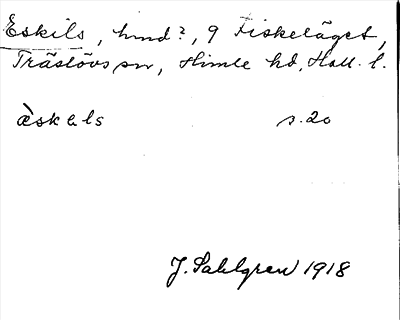 Eskils, hmd?, 9 Fiskeläget,
Träslövs sn, Himle hd, Hall. l.
æskɩls s. 20
J. Sahlgren 1918